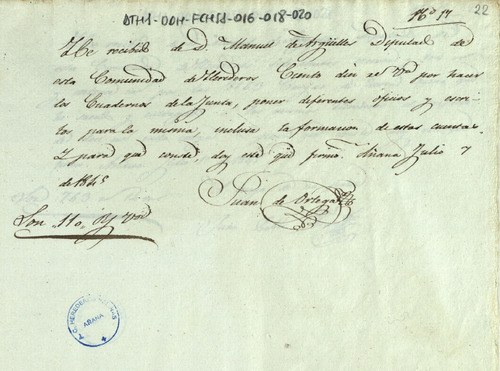 ATHA-DOH-FCHSA-016-018-020
22
Nº 17
He recibido de D. Manuel de Argüelles Diputado de
esta Comunidad de Herederos Ciento diez rs. vn. por hacer
los Cuadernos de la Junta, poner diferentes oficios y escri-
tos para la misma, inclusa la formacion de estas cuentas
Y para que conste, doy este que firmo. Añana Julio 7
de 1845
Juan de Ortega
Son 110 rs vn
AÑANA